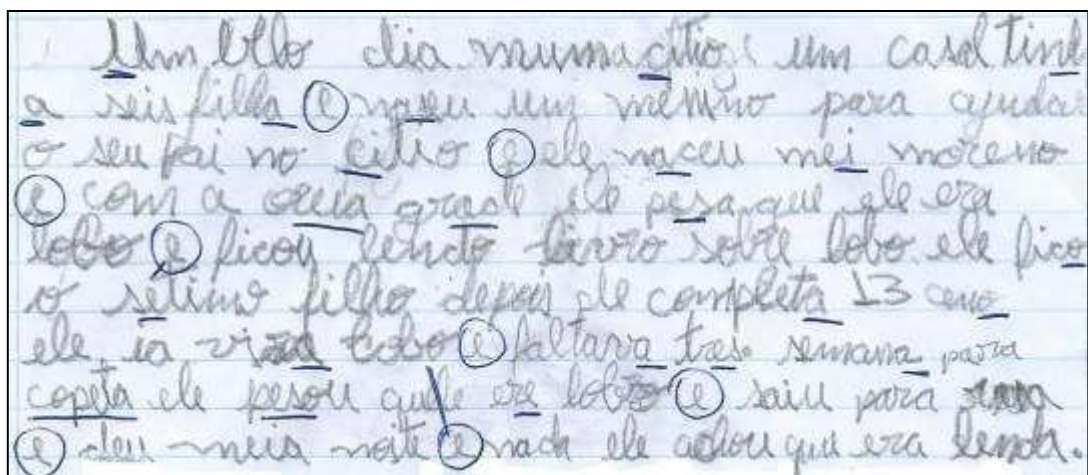 Um bllo dia numa citio um casal tinh
a seis filha e naseu um menino para ajudar
o seu pai no citio e ele naceu mei moreno
e com a oreia grasde ele pesa que ele era
lobo e ficou lendo livro sobre lobo ele fico
o sétimo filho depois de completa 13 ano
ele ia vira lobo e faltava tres semana para
copeta ele pesou quele era lobo e saiu para
e deu meia noite e nada ele achou que era lenda.